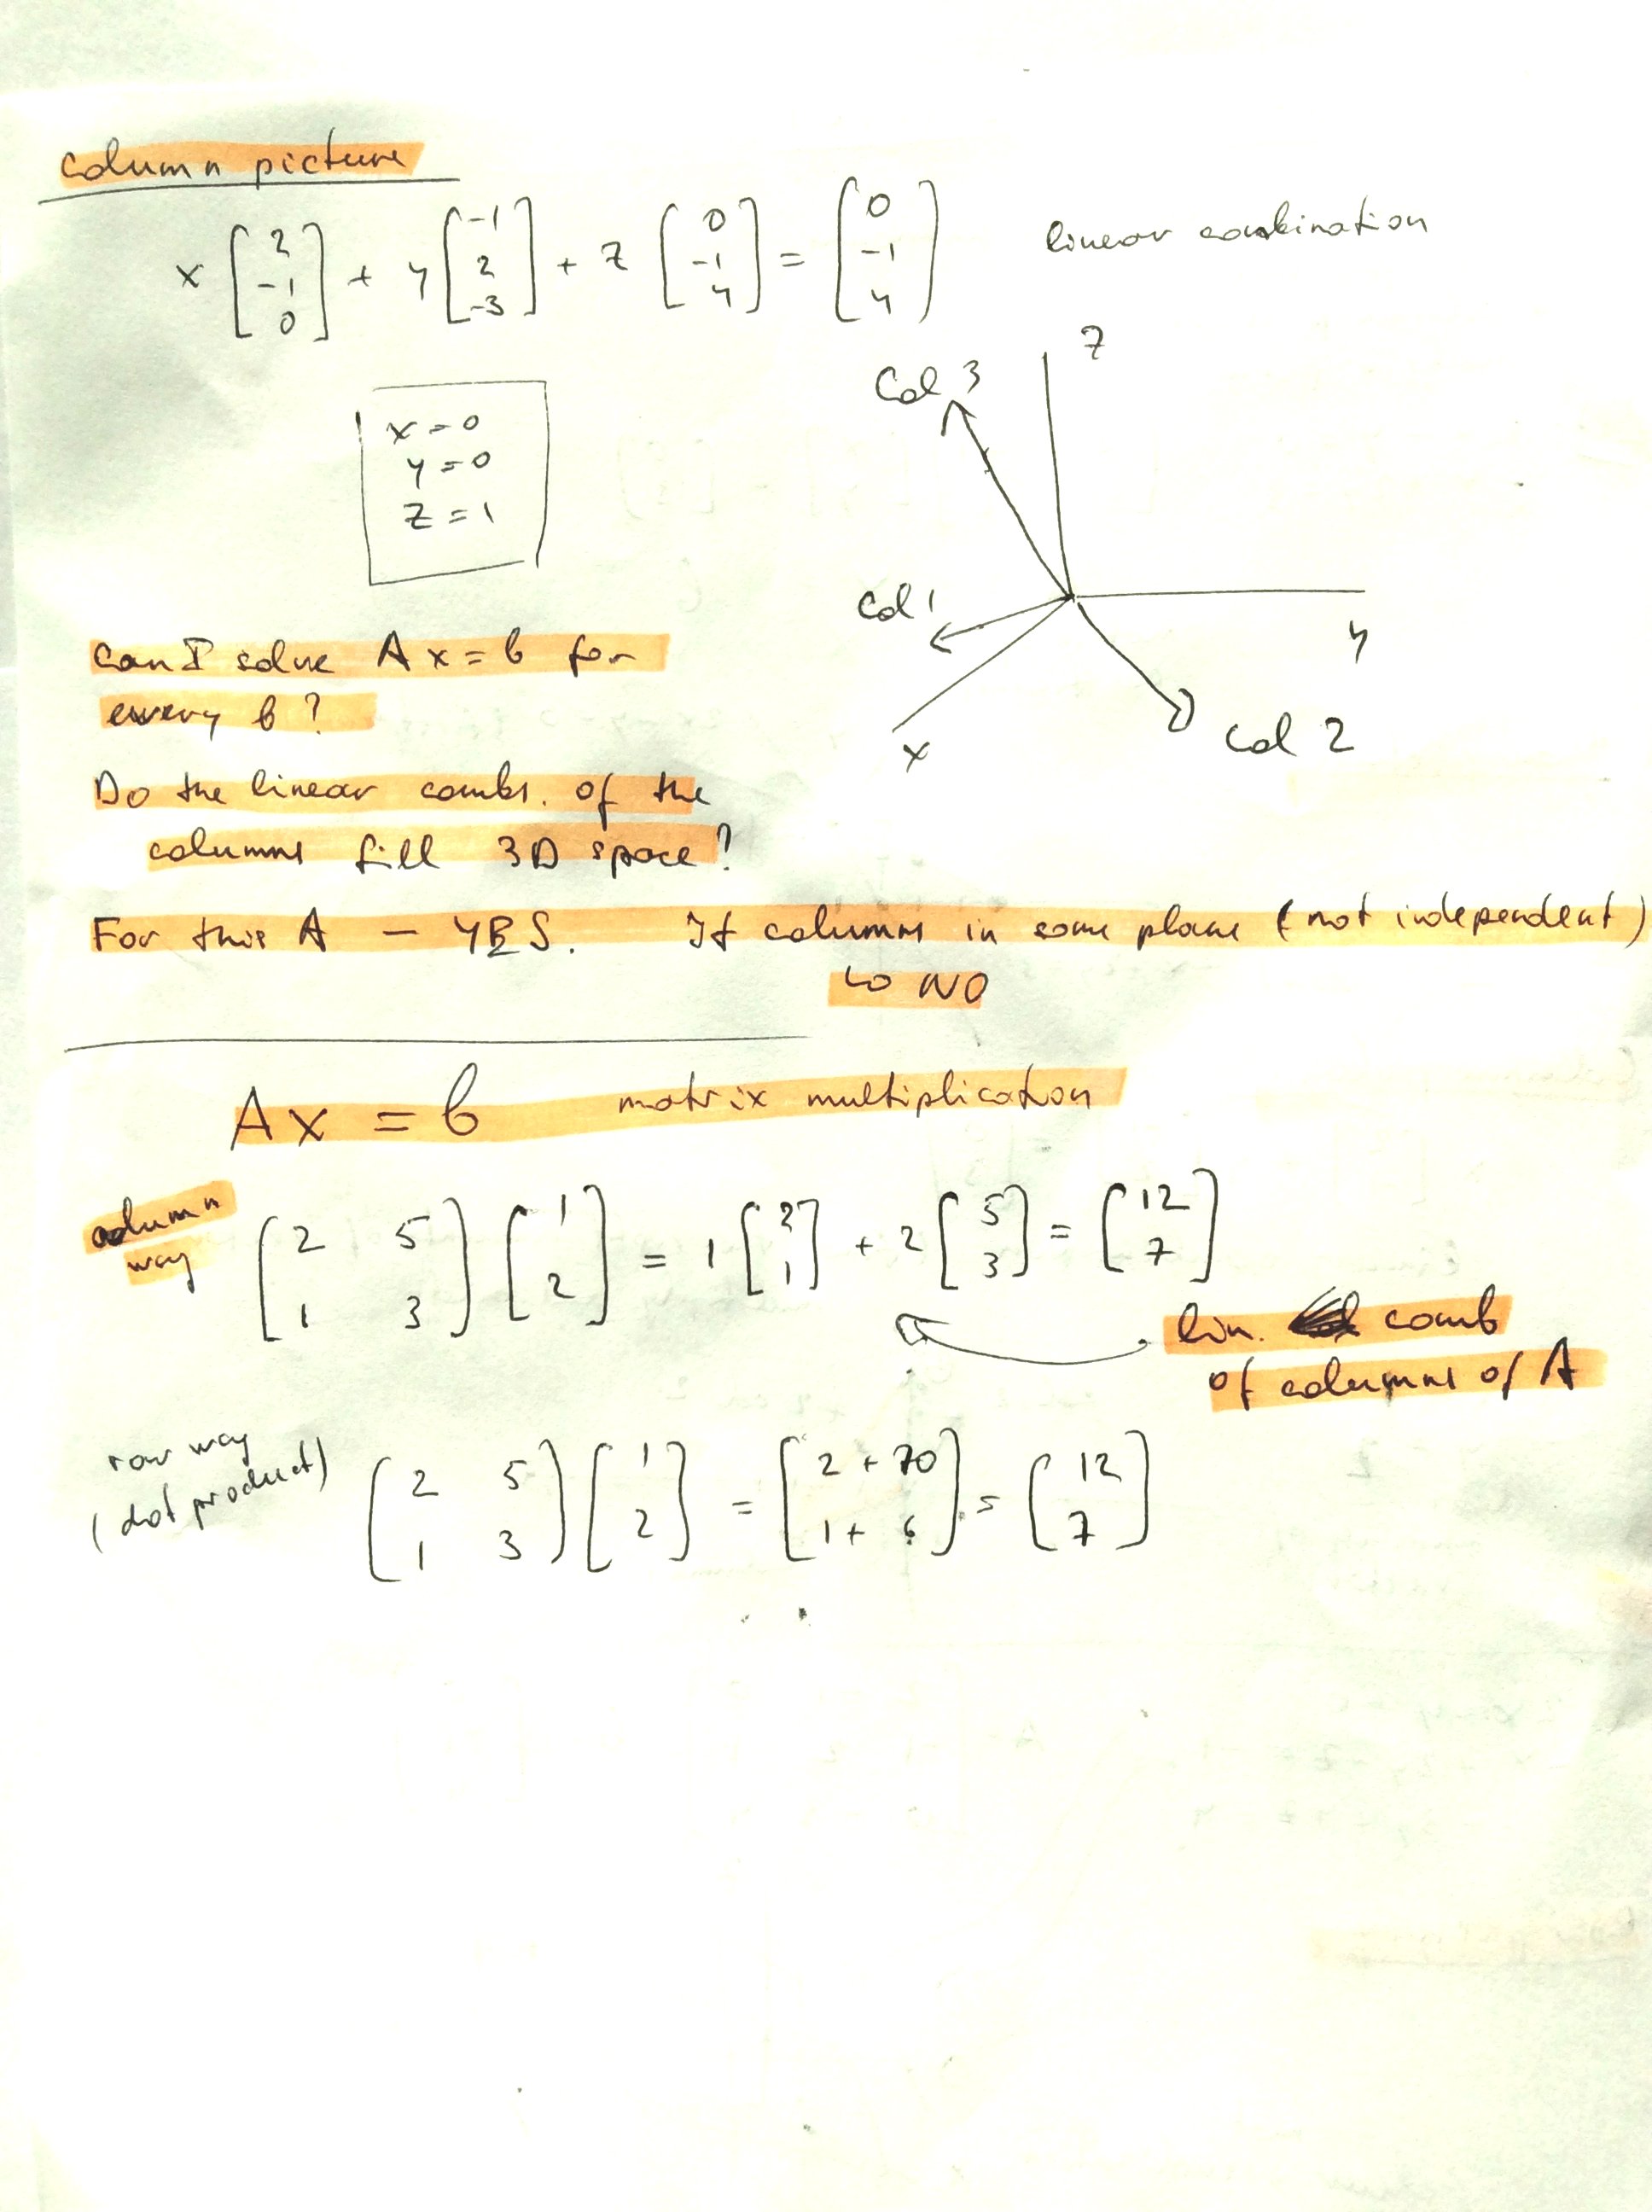 column picture
x [2 -1 0] + y [-1 2 -3] + z [0 -1 4] = [0 -1 4] linear combination
x = 0
y = 0
z = 1
z
Col 3
Col 1
y
x
Col 2
Can I solve Ax = b for
every b?
Do the linear combs. of the
columns fill 3D space?
For this A — YES. If columns in same plane (not independent)
↳ NO
Ax = b matrix multiplication
column
way
[2 5
1 3] [1
2] = 1 [2
1] + 2 [5
3] = [12
7]
lin. comb
of columns of A
row way
(dot product)
[2 5
1 3] [1
2] = [2 + 10
1 + 6] = [12
7]